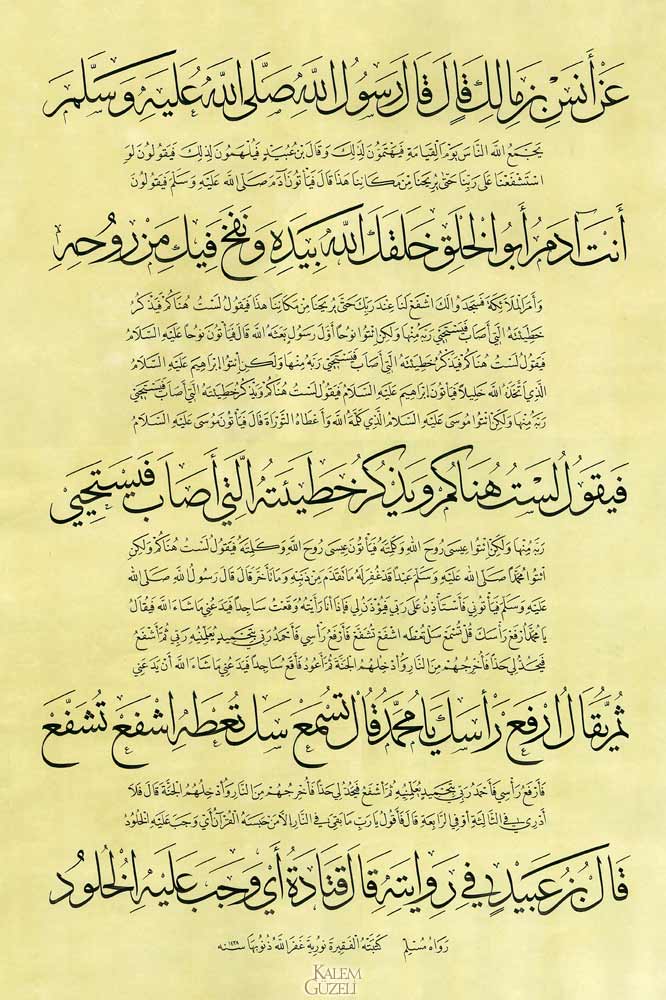 عَنْ أَنَسِ بْنِ مَالِكٍ قَالَ قَالَ رَسُولُ اللَّهِ صَلَّى اللَّهُ عَلَيْهِ وَسَلَّمَ
يَجْمَعُ اللَّهُ النَّاسَ يَوْمَ الْقِيَامَةِ فَيَهْتَمُّونَ لِذَلِكَ وَقَالَ بْنُ عُبَيْدٍ فَيُلْهَمُونَ لِذَلِكَ فَيَقُولُونَ لَوِ
اسْتَشْفَعْنَا عَلَى رَبِّنَا حَتَّى يُرِيحَنَا مِنْ مَكَانِنَا هَذَا قَالَ فَيَأْتُونَ آدَمَ صَلَّى اللَّهُ عَلَيْهِ وَسَلَّمَ فَيَقُولُونَ
أَنْتَ آدَمُ أَبُو الْخَلْقِ خَلَقَكَ اللَّهُ بِيَدِهِ وَنَفَخَ فِيكَ مِنْ رُوحِهِ
وَأَمَرَ الْمَلَائِكَةَ فَسَجَدُوا لَكَ اشْفَعْ لَنَا عِنْدَ رَبِّكَ حَتَّى يُرِيحَنَا مِنْ مَكَانِنَا هَذَا فَيَقُولُ لَسْتُ هُنَاكُمْ فَيَذْكُرُ
خَطِيئَتَهُ الَّتِي أَصَابَ فَيَسْتَحْيِي رَبَّهُ مِنْهَا وَلَكِنِ ائْتُوا نُوحًا أَوَّلَ رَسُولٍ بَعَثَهُ اللَّهُ قَالَ فَيَأْتُونَ نُوحًا عَلَيْهِ السَّلَامُ
فَيَقُولُ لَسْتُ هُنَاكُمْ فَيَذْكُرُ خَطِيئَتَهُ الَّتِي أَصَابَ فَيَسْتَحْيِي رَبَّهُ مِنْهَا وَلَكِنِ ائْتُوا إِبْرَاهِيمَ عَلَيْهِ السَّلَامُ
الَّذِي اتَّخَذَهُ اللَّهُ خَلِيلًا فَيَأْتُونَ إِبْرَاهِيمَ عَلَيْهِ السَّلَامُ فَيَقُولُ لَسْتُ هُنَاكُمْ وَيَذْكُرُ خَطِيئَتَهُ الَّتِي أَصَابَ فَيَسْتَحْيِي
رَبَّهُ مِنْهَا وَلَكِنِ ائْتُوا مُوسَى عَلَيْهِ السَّلَامُ الَّذِي كَلَّمَهُ اللَّهُ وَأَعْطَاهُ التَّوْرَاةَ قَالَ فَيَأْتُونَ مُوسَى عَلَيْهِ السَّلَامُ
فَيَقُولُ لَسْتُ هُنَاكُمْ وَيَذْكُرُ خَطِيئَتَهُ الَّتِي أَصَابَ فَيَسْتَحْيِي
رَبَّهُ مِنْهَا وَلَكِنِ ائْتُوا عِيسَى رُوحَ اللَّهِ وَكَلِمَتَهُ فَيَأْتُونَ عِيسَى رُوحَ اللَّهِ وَكَلِمَتَهُ فَيَقُولُ لَسْتُ هُنَاكُمْ وَلَكِنِ
ائْتُوا مُحَمَّدًا صَلَّى اللَّهُ عَلَيْهِ وَسَلَّمَ عَبْدًا قَدْ غُفِرَ لَهُ مَا تَقَدَّمَ مِنْ ذَنْبِهِ وَمَا تَأَخَّرَ قَالَ قَالَ رَسُولُ اللَّهِ صَلَّى اللَّهُ
عَلَيْهِ وَسَلَّمَ فَيَأْتُونِي فَأَسْتَأْذِنُ عَلَى رَبِّي فَيُؤْذَنُ لِي فَإِذَا أَنَا رَأَيْتُهُ وَقَعْتُ سَاجِدًا فَيَدَعُنِي مَا شَاءَ اللَّهُ فَيُقَالُ
يَا مُحَمَّدُ ارْفَعْ رَأْسَكَ قُلْ تُسْمَعْ سَلْ تُعْطَهْ اشْفَعْ تُشَفَّعْ فَأَرْفَعُ رَأْسِي فَأَحْمَدُ رَبِّي بِتَحْمِيدٍ يُعَلِّمُنِيهِ رَبِّي ثُمَّ أَشْفَعُ
فَيَحُدُّ لِي حَدًّا فَأُخْرِجُهُمْ مِنَ النَّارِ وَأُدْخِلُهُمُ الْجَنَّةَ ثُمَّ أَعُودُ فَأَقَعُ سَاجِدًا فَيَدَعُنِي مَا شَاءَ اللَّهُ أَنْ يَدَعَنِي
ثُمَّ يُقَالُ ارْفَعْ رَأْسَكَ يَا مُحَمَّدُ قُلْ تُسْمَعْ سَلْ تُعْطَهْ اشْفَعْ تُشَفَّعْ
فَأَرْفَعُ رَأْسِي فَأَحْمَدُ رَبِّي بِتَحْمِيدٍ يُعَلِّمُنِيهِ ثُمَّ أَشْفَعُ فَيَحُدُّ لِي حَدًّا فَأُخْرِجُهُمْ مِنَ النَّارِ وَأُدْخِلُهُمُ الْجَنَّةَ قَالَ فَلَا
أَدْرِي فِي الثَّالِثَةِ أَوْ فِي الرَّابِعَةِ قَالَ فَأَقُولُ يَا رَبِّ مَا بَقِيَ فِي النَّارِ إِلَّا مَنْ حَبَسَهُ الْقُرْآنُ أَيْ وَجَبَ عَلَيْهِ الْخُلُودُ
قَالَ بْنُ عُبَيْدٍ فِي رِوَايَتِهِ قَالَ قَتَادَةُ أَيْ وَجَبَ عَلَيْهِ الْخُلُودُ
رَوَاهُ مُسْلِم كَتَبَتْهُ الْفَقِيرَة نُورِيَة غَفَرَ اللَّهُ ذُنُوبَهَا سنه
KALEM GÜZELİ